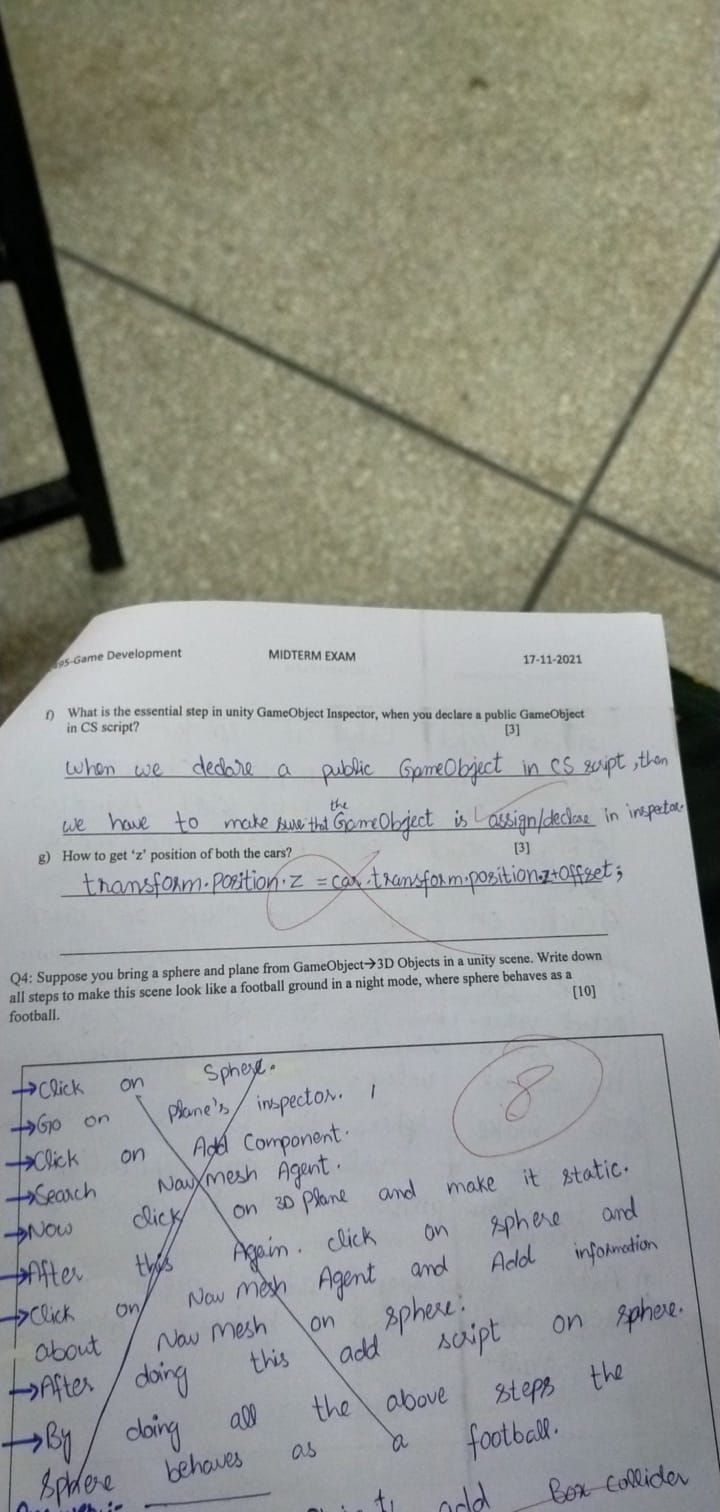 495-Game Development MIDTERM EXAM 17-11-2021
f) What is the essential step in unity GameObject Inspector, when you declare a public GameObject
in CS script? [3]
When we declare a public GameObject in CS script, then
we have to make sure that the GameObject is assign/declare in inspector.
g) How to get 'z' position of both the cars? [3]
transform.position.z = car.transform.position.z+offset;
Q4: Suppose you bring a sphere and plane from GameObject→3D Objects in a unity scene. Write down
all steps to make this scene look like a football ground in a night mode, where sphere behaves as a
football. [10]
8
→Click on Sphere.
→Go on plane's inspector.
→Click on Add Component.
→Search Nav mesh Agent.
→Now click on 3D plane and make it static.
→After this Again. click on sphere and
→Click on Nav mesh Agent and Add information
about Nav Mesh on sphere.
→After doing this add script on sphere.
→By doing all the above steps the
sphere behaves as a football.
add Box collider